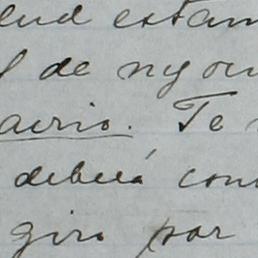 lud estam
de nyou
aerio. Te
deberá con
giro por